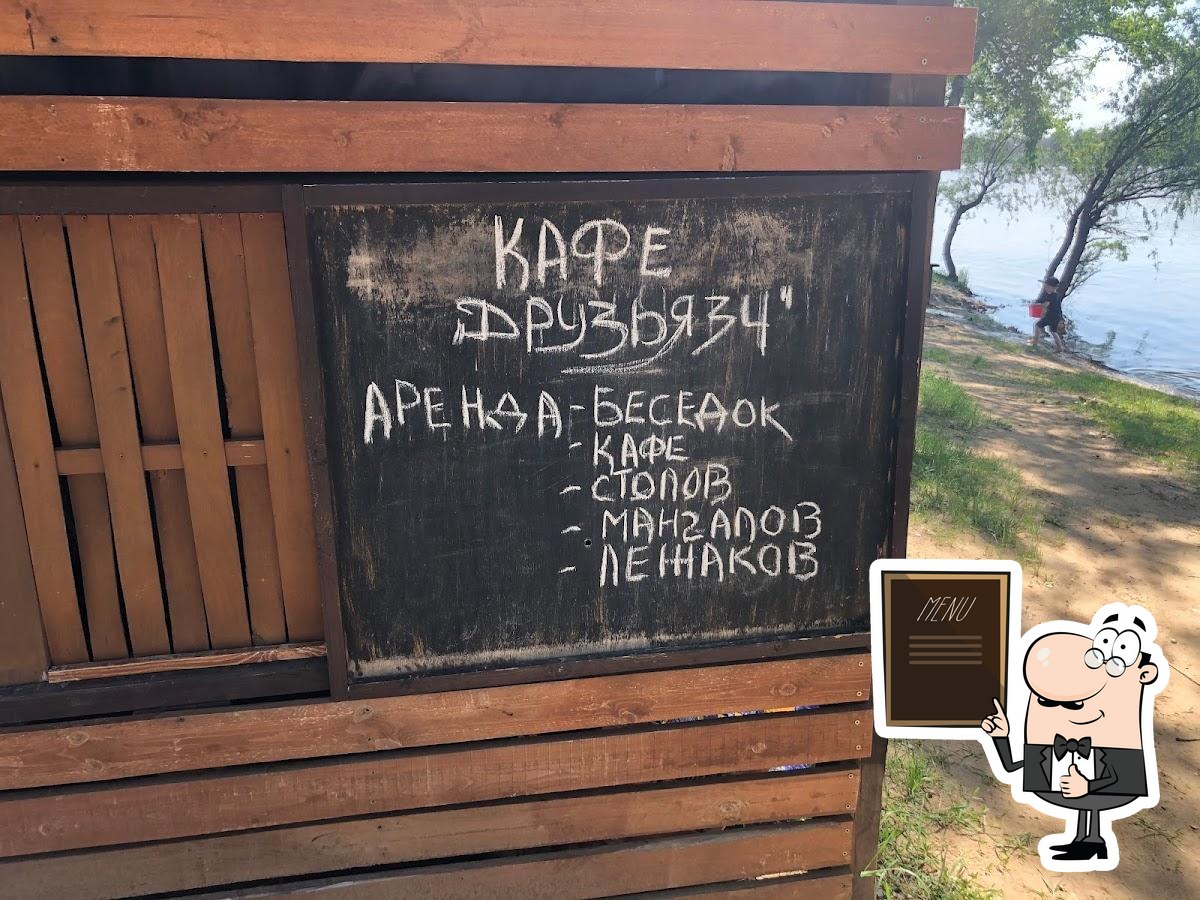 КАФЕ
„ДРУЗЬЯЗЧ"
АРЕНДА - БЕСЕДОК
- КАФЕ
- СТОЛОВ
- МАНГАЛОВ
- ЛЕЖАКОВ
MENU